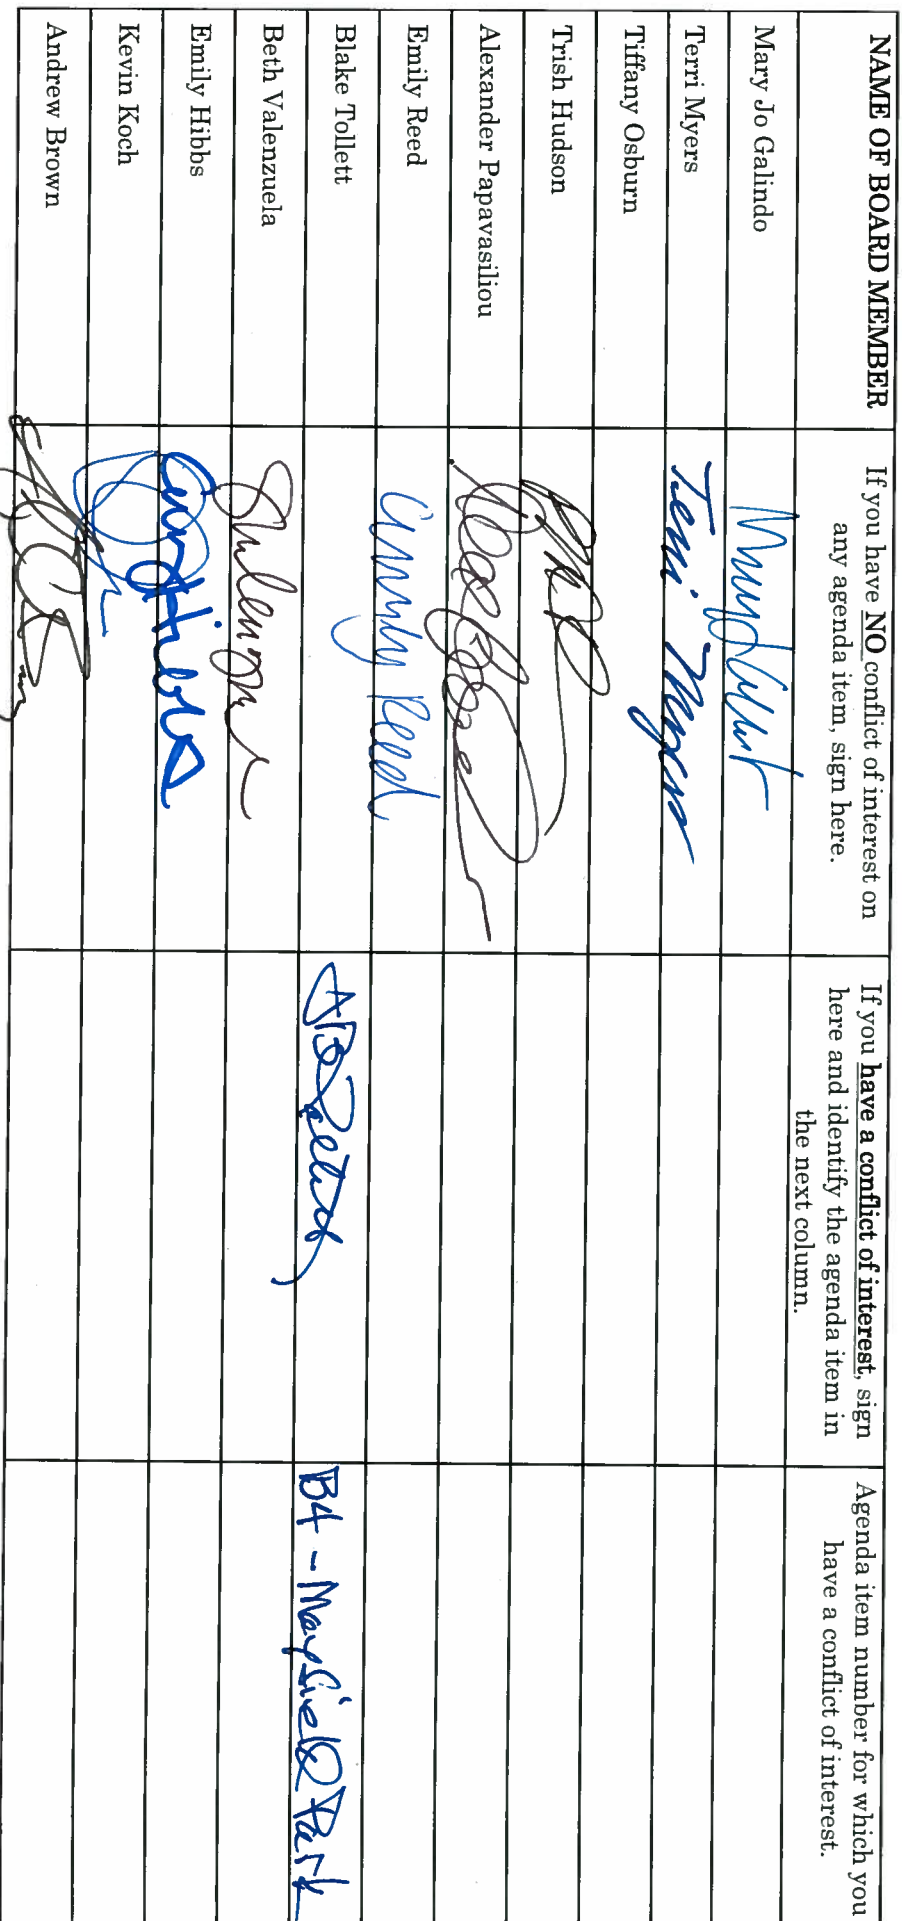 NAME OF BOARD MEMBER
If you have NO conflict of interest on
any agenda item, sign here.
If you have a conflict of interest, sign
here and identify the agenda item in
the next column.
Agenda item number for which you
have a conflict of interest.
Mary Jo Galindo
Terri Myers
Terri Myers
Tiffany Osburn
Trish Hudson
Alexander Papavasiliou
Emily Reed
Emily Reed
Blake Tollett
B4 - Mayfield Park
Beth Valenzuela
Emily Hibbs
Kevin Koch
Andrew Brown